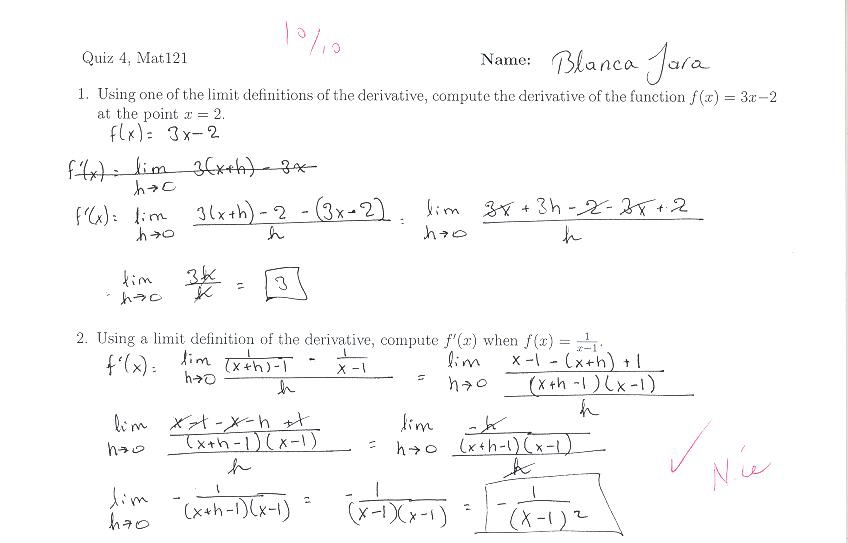 10/10
Quiz 4, Mat121 Name: Blanca Jara
1. Using one of the limit definitions of the derivative, compute the derivative of the function f(x) = 3x−2
at the point x = 2.
f(x) = 3x-2
f'(x) = lim h→0 3(x+h) - 3x
f'(x) = lim h→0 (3(x+h) - 2 - (3x-2))/h = lim h→0 (3x + 3h - 2 - 3x + 2)/h
lim h→0 3h/h = 3
2. Using a limit definition of the derivative, compute f′(x) when f(x) = 1/(x−1).
f'(x) = lim h→0 (1/((x+h)-1) - 1/(x-1))/h = lim h→0 ((x-1-(x+h)+1)/((x+h-1)(x-1)))/h
lim h→0 ((x-1-x-h+1)/((x+h-1)(x-1)))/h = lim h→0 (-h/((x+h-1)(x-1)))/h
✓ Nice
lim h→0 -1/((x+h-1)(x-1)) = -1/((x-1)(x-1)) = -1/(x-1)²